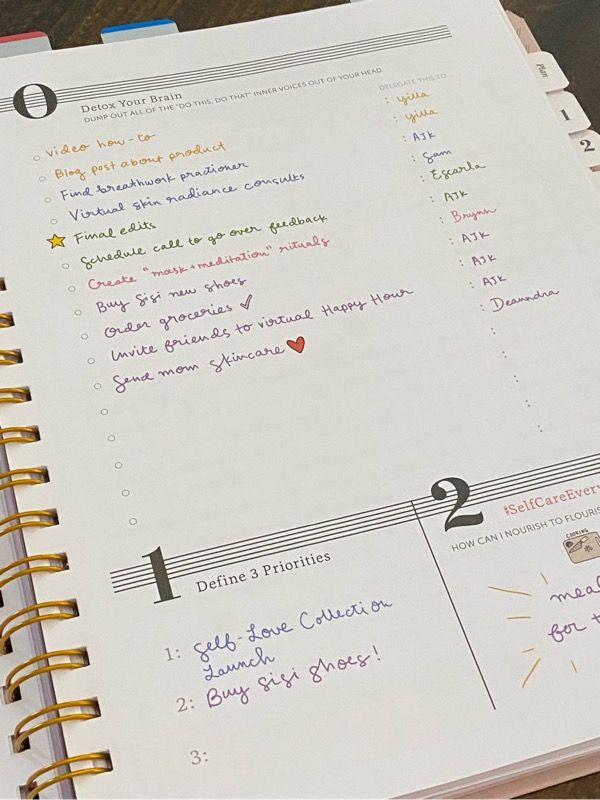 Plan
1
2
0
Detox Your Brain
DUMP OUT ALL OF THE "DO THIS, DO THAT" INNER VOICES OUT OF YOUR HEAD.
DELEGATE THIS TO
Video how-to : yilla
Blog post about product : yilla
Find breathwork practioner : AJK
Virtual skin radiance consults : Sam
Final edits : Escarla
Schedule call to go over feedback : AJK
Create "mask + meditation" rituals : Brynn
Buy Sisi new shoes : AJK
Order groceries ✓ : AJK
Invite friends to virtual Happy Hour : AJK
Send mom skincare ❤ : Deanndra
1
Define 3 Priorities
1: Self-Love Collection
Launch
2: Buy Sisi shoes!
3:
2
#SelfCareEver
HOW CAN I NOURISH TO FLOURIS
COOKING
meal
for t